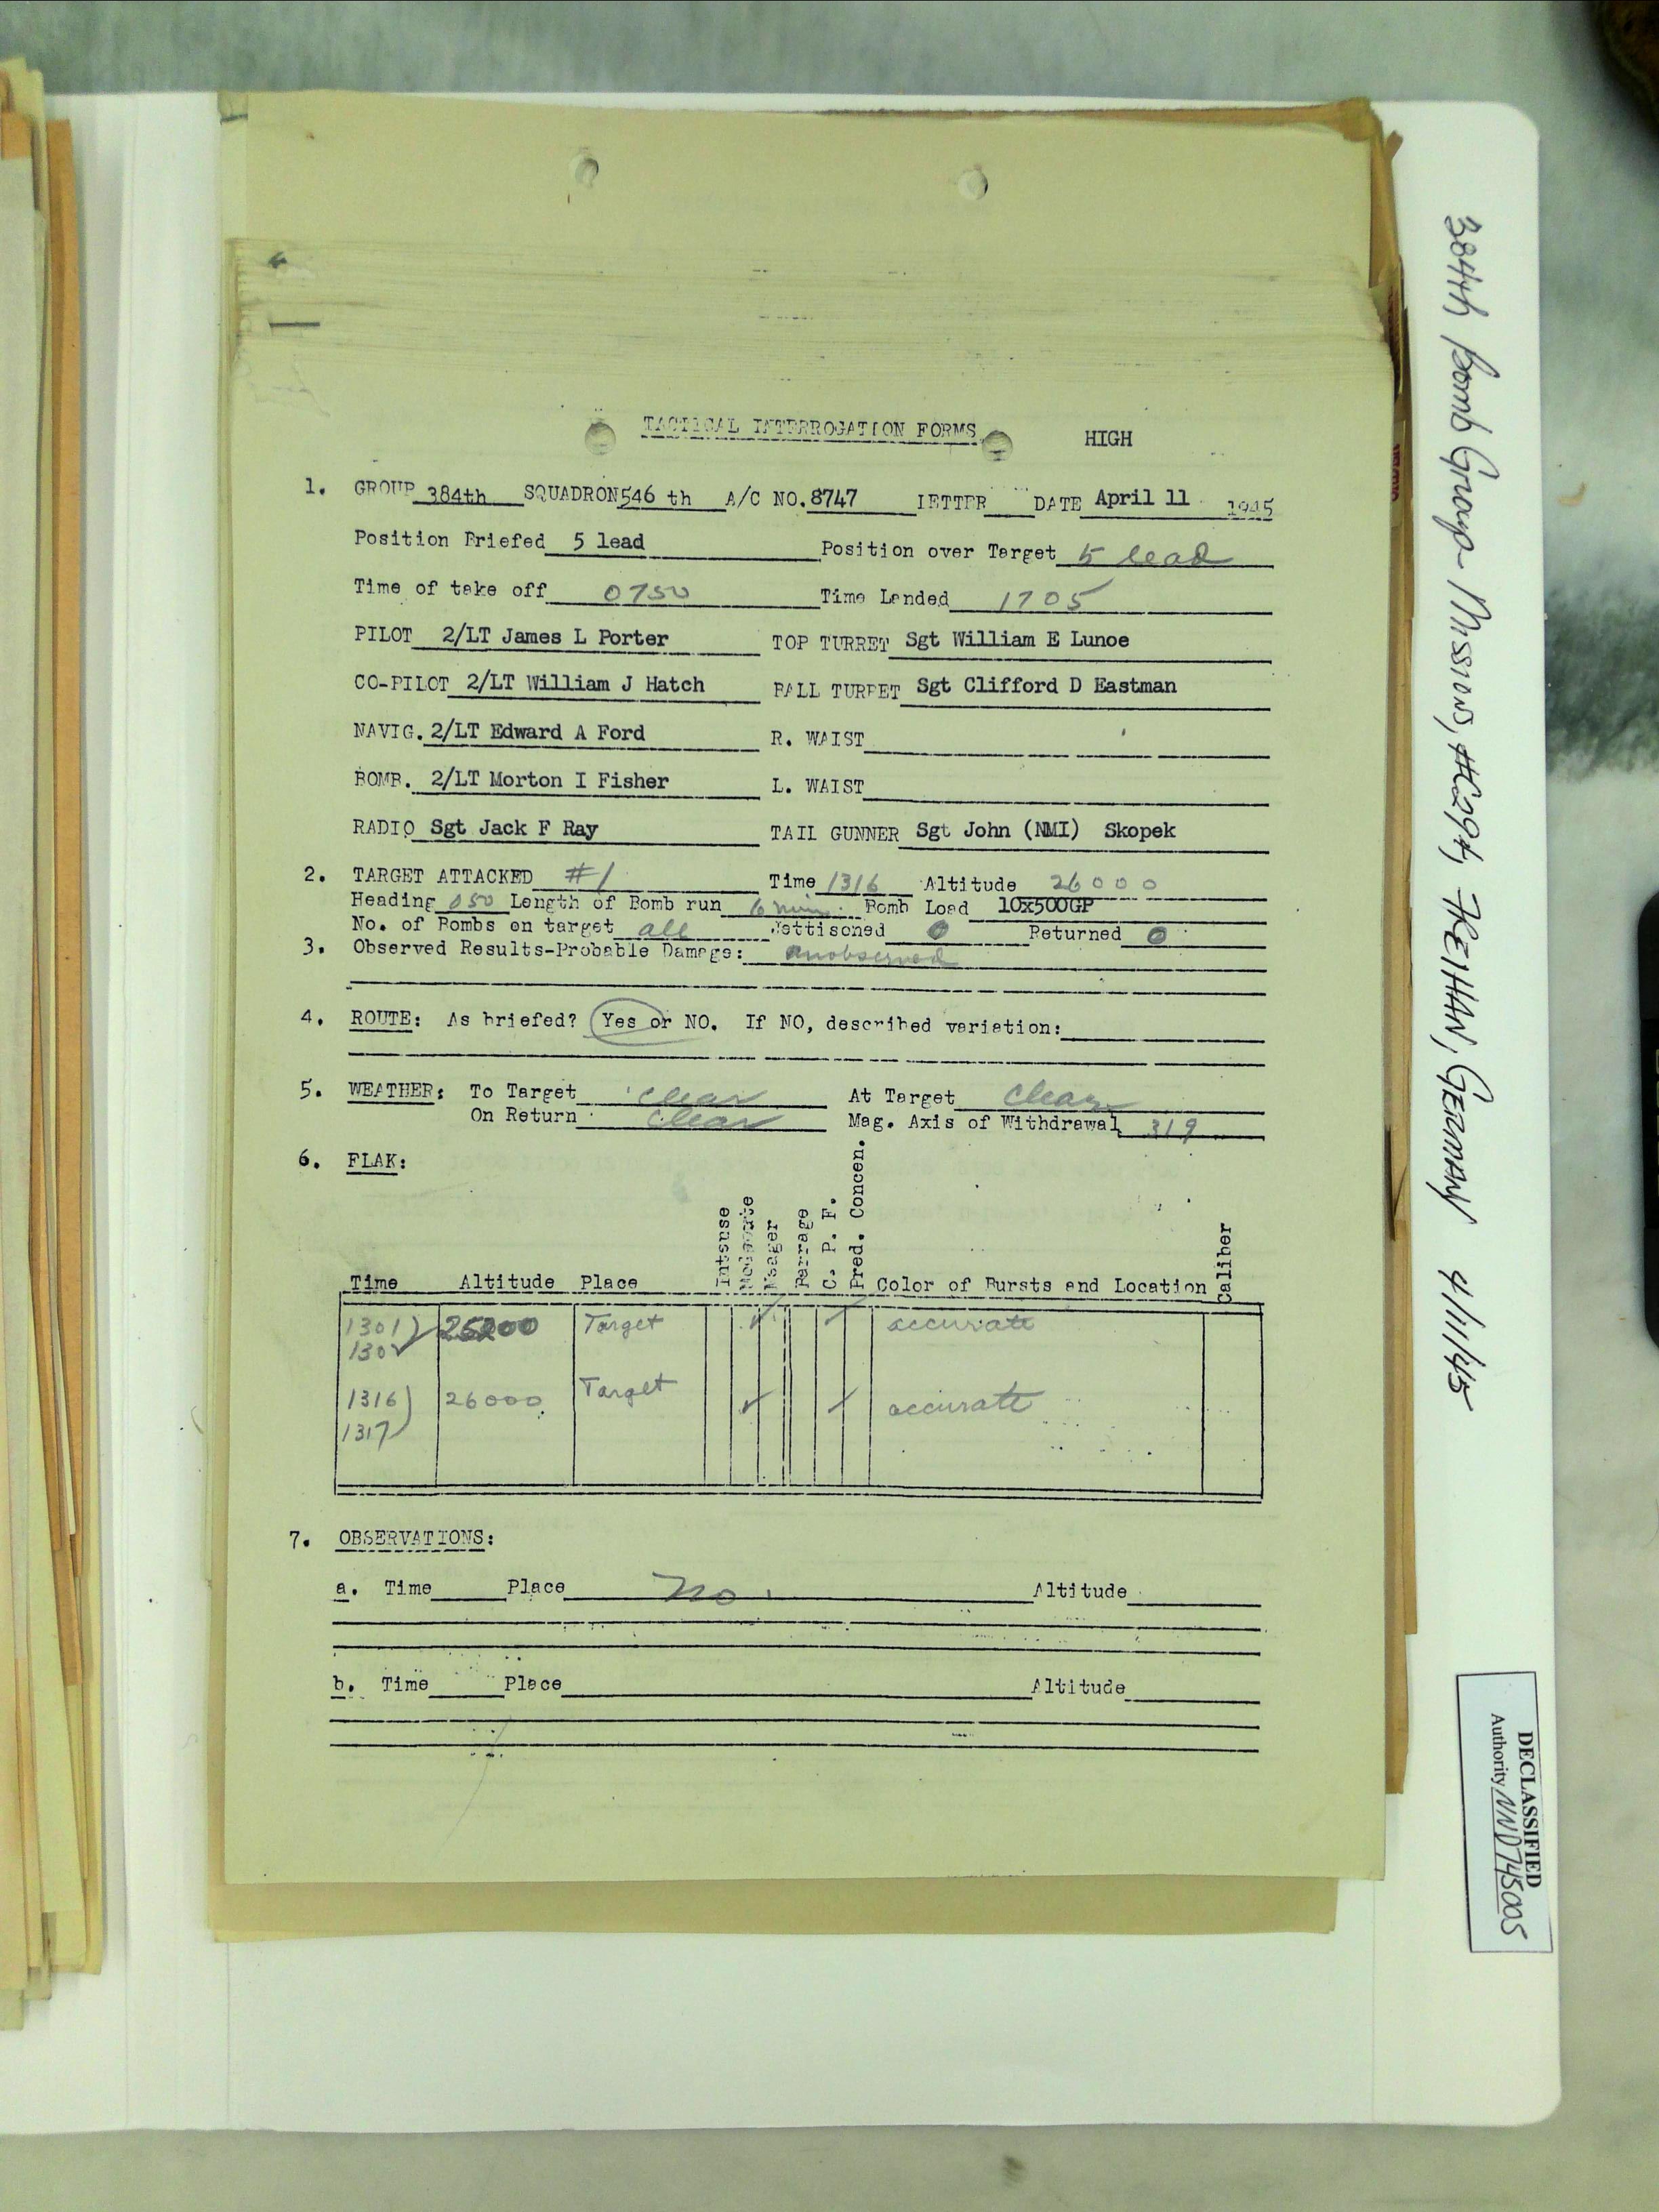 TACTICAL INTERROGATION FORMS HIGH
1. GROUP 384th SQUADRON 546 th A/C NO. 8747 LETTER DATE April 11 1945
Position Briefed 5 lead Position over Target 5 lead
Time of take off 0750 Time Landed 1705
PILOT 2/LT James L Porter TOP TURRET Sgt William E Lunoe
CO-PILOT 2/LT William J Hatch BALL TURRET Sgt Clifford D Eastman
NAVIG. 2/LT Edward A Ford R. WAIST
BOMB. 2/LT Morton I Fisher L. WAIST
RADIO Sgt Jack F Ray TAIL GUNNER Sgt John (NMI) Skopek
2. TARGET ATTACKED #1 Time 1316 Altitude 26000
Heading 050 Length of Bomb run 6 min. Bomb Load 10x500GP
No. of Bombs on target all Jettisoned 0 Returned 0
3. Observed Results-Probable Damage: unobserved
4. ROUTE: As briefed? Yes or NO. If NO, described variation:
5. WEATHER: To Target clear At Target clear
On Return clear Mag. Axis of Withdrawal 319
6. FLAK:
Time Altitude Place Intsuse Moderate Meager Barrage C. P. F. Pred. Concen. Color of Bursts and Location Caliber
1301) Target ✓ ✓ accurate
1302
1316) 26000 Target ✓ ✓ accurate
1317)
7. OBSERVATIONS:
a. Time Place no Altitude
b. Time Place Altitude
384th Bomb Group Missions, 4/11/45
DECLASSIFIED
Authority NND745005